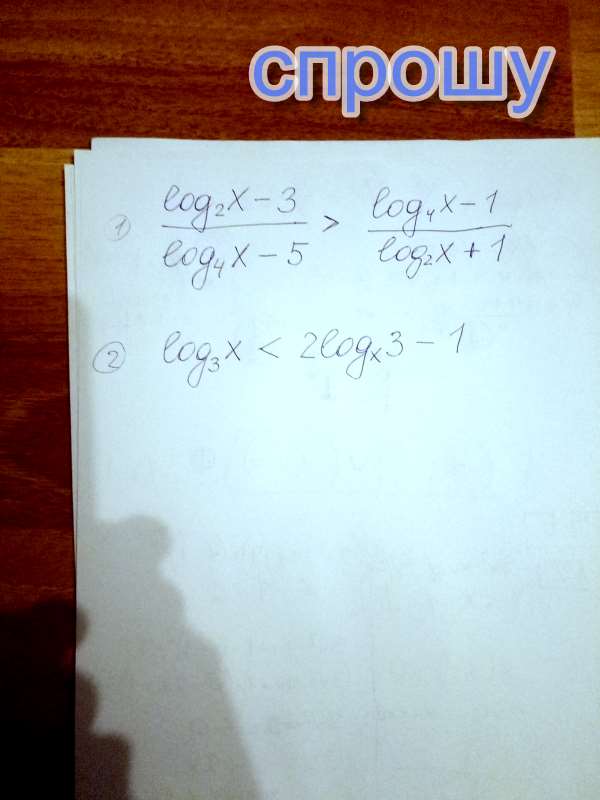 спрошу
1) (log₂x − 3)/(log₄x − 5) > (log₄x − 1)/(log₂x + 1)
2) log₃x < 2logₓ3 − 1